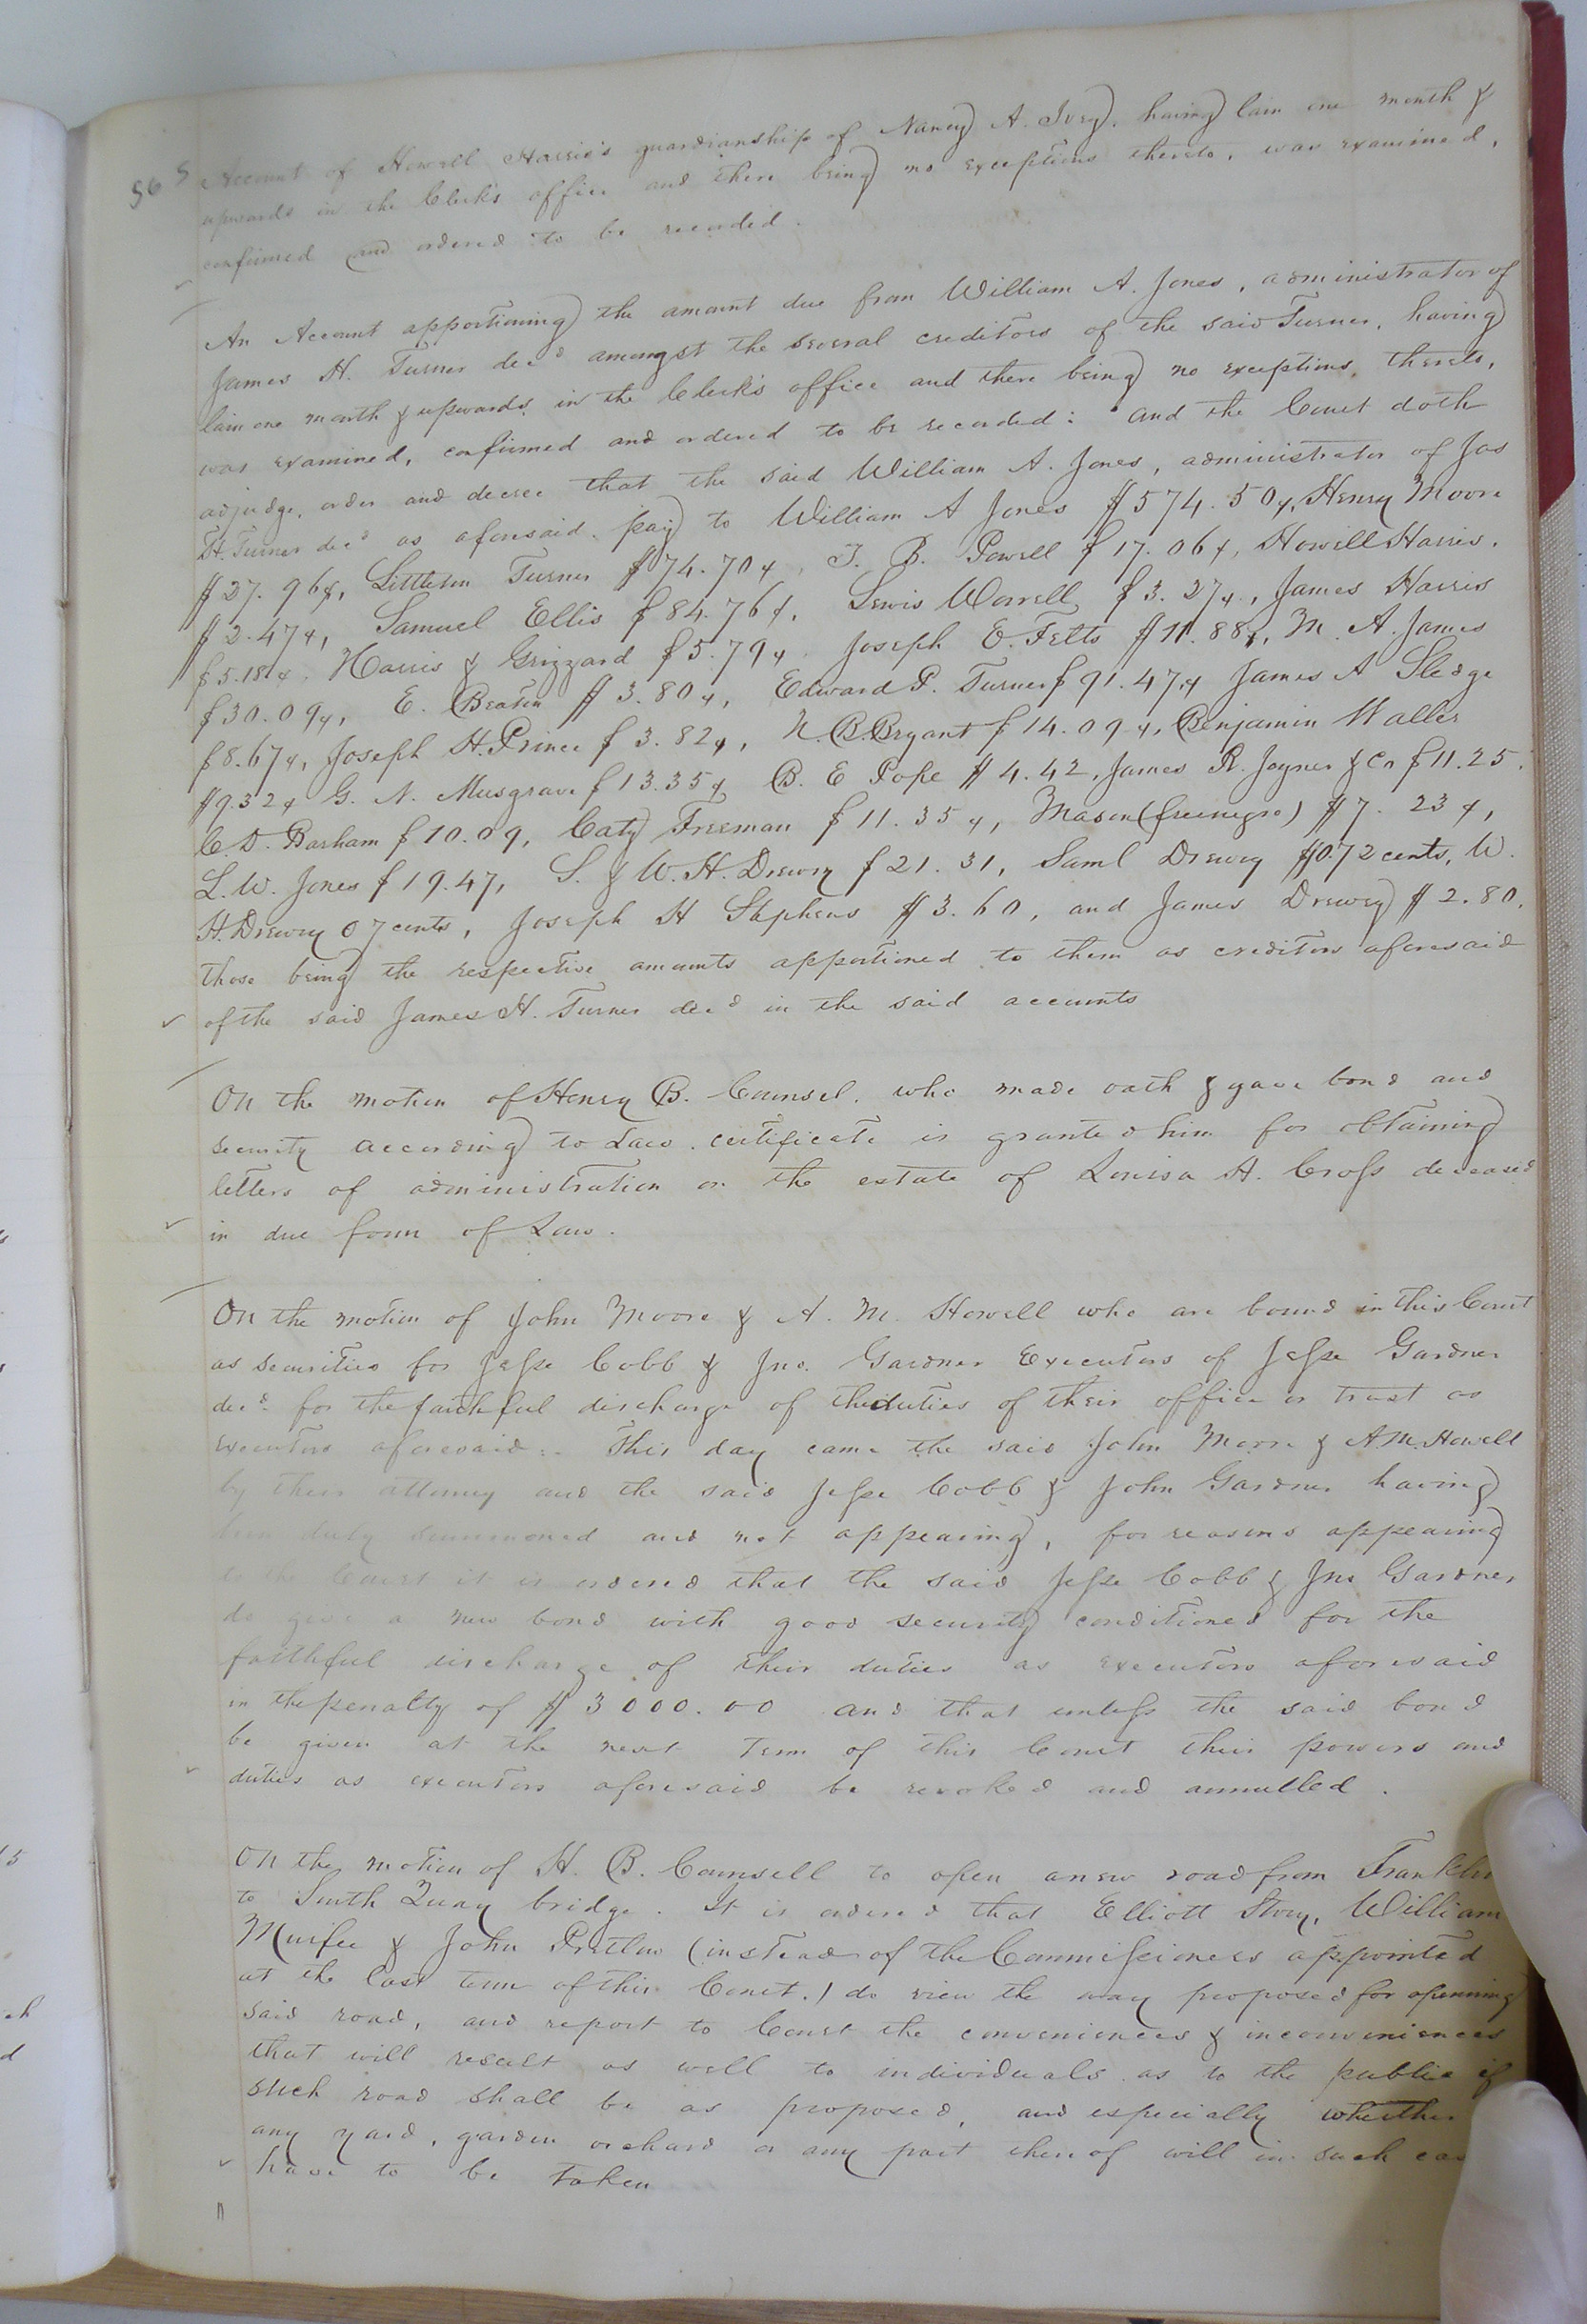 565 Account of Howell Harris's guardianship of Nancy A. Ivey, having lain one month &
upwards in the Clerk's office and there being no exceptions thereto, was examined,
confirmed and ordered to be recorded.
An Account apportioning the amount due from William A. Jones, administrator of
James H. Turner decd amongst the several creditors of the said Turner, having
lain one month & upwards in the Clerk's office and there being no exceptions, thereto,
was examined, confirmed and ordered to be recorded: and the Court doth
adjudge, order and decree that the said William A. Jones, administrator of Jas
H. Turner decd as aforesaid, pay to William A Jones $574.50, Henry Moore
$27.96, Littleton Turner $74.70, J. B. Powell $17.06, Howell Harris.
$2.47, Samuel Ellis $84.76, Lewis Worrell $3.27, James Harris
$5.18, Harris & Grizzard $5.79, Joseph E. Felts $11.88, M. A. James
$30.09, E. Beaton $3.80, Edward P. Turner $91.47, James A Sledge
$8.67, Joseph H. Prince $3.82, N. B. Bryant $14.09, Benjamin Waller
$9.32 G. N. Musgrave $13.35 B. E Pope $4.42, James R. Joyner & Co $11.25.
C. D. Barham $10.09, Caty Freeman $11.35, Mason (free negro) $7.23,
L. W. Jones $19.47, S. & W. H. Drewry $21.31, Saml Drewry $0.72 cents, W.
H. Drewry 07 cents, Joseph H Stephens $3.60, and James Drewry $2.80.
those being the respective amounts apportioned to them as creditors aforesaid
of the said James H. Turner decd in the said accounts
On the motion of Henry B. Counsel, who made oath & gave bond and
security according to Law. certificate is granted him for obtaining
letters of administration on the estate of Louisa H. Cross deceased
in due form of Law.
On the motion of John Moore & A. M. Howell who are bound in this Court
as securities for Jesse Cobb & Jno. Gardner Executors of Jesse Gardner
decd. for the faithful discharge of the duties of their office or trust as
executors aforesaid:- This day came the said John Moore & A M. Howell
by their attorney and the said Jesse Cobb & John Gardner having
been duly summoned and not appearing, for reasons appearing
to the Court it is ordered that the said Jesse Cobb & Jno Gardner
do give a new bond with good security conditioned for the
faithful discharge of their duties as executors aforesaid
in the penalty of $3000.00 and that unless the said bond
be given at the next Term of this Court their powers and
duties as executors aforesaid be revoked and annulled.
On the motion of H. B. Counsell to open a new road from Franklin
to South Quay bridge. It is ordered that Elliott Story, William
Murfee & John Pretlow (instead of the Commissioners appointed
at the last term of this Court.) do view the way proposed for openning
said road, and report to Court the conveniences & inconveniences
that will result as well to individuals as to the public if
such road shall be as proposed, and especially whether
any yard, garden orchard or any part thereof will in such
have to be taken